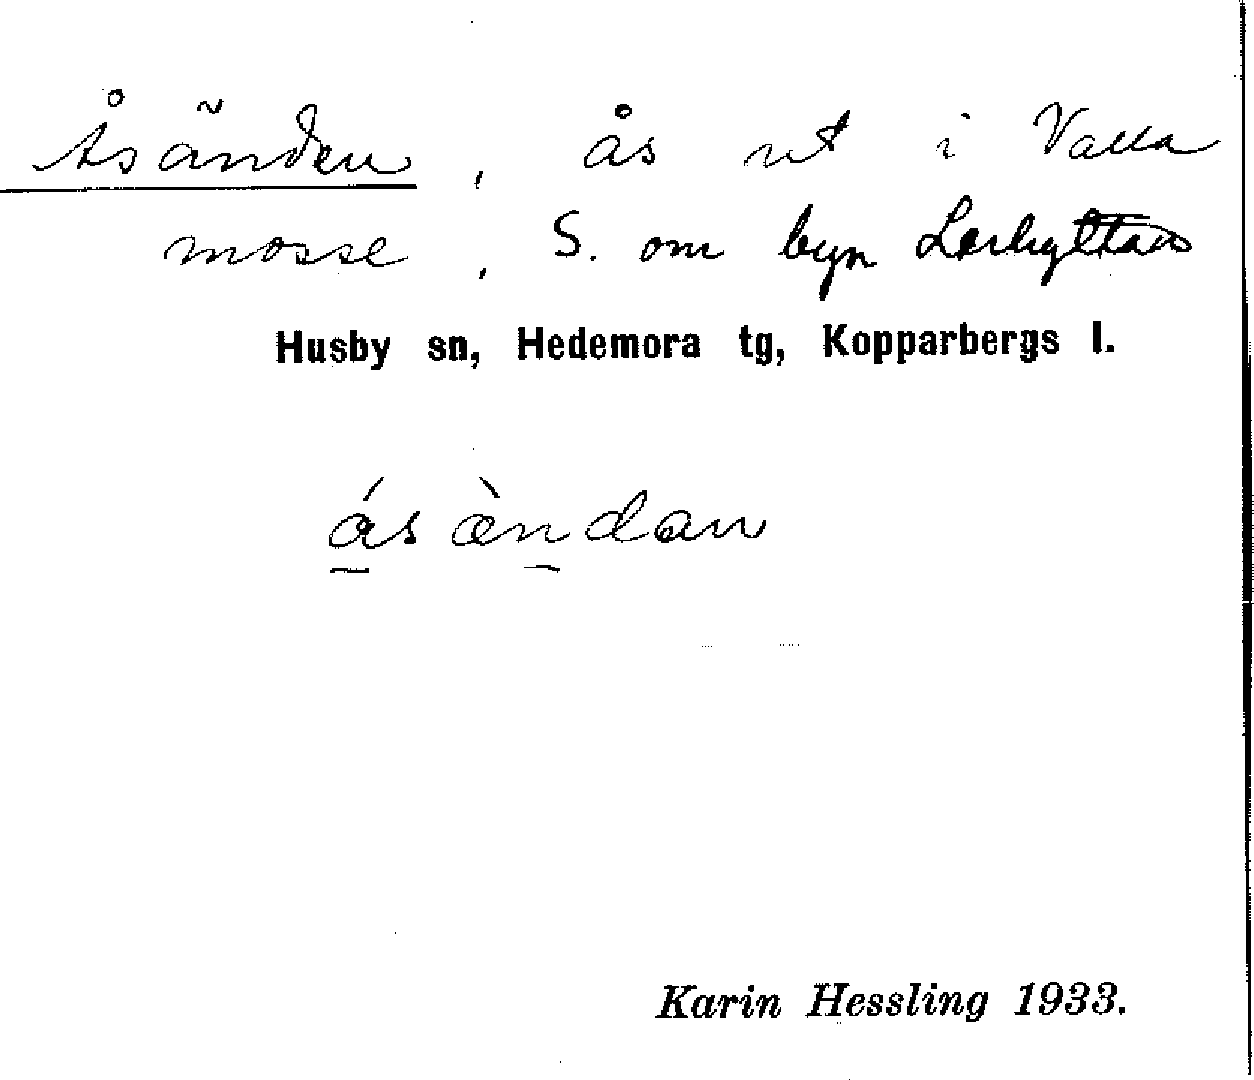 Åsänden, ås ut i Valla
mosse, S. om byn Lerhyttan
Husby sn, Hedemora tg, Kopparbergs l.
ás æ̀ndan
Karin Hessling 1933.